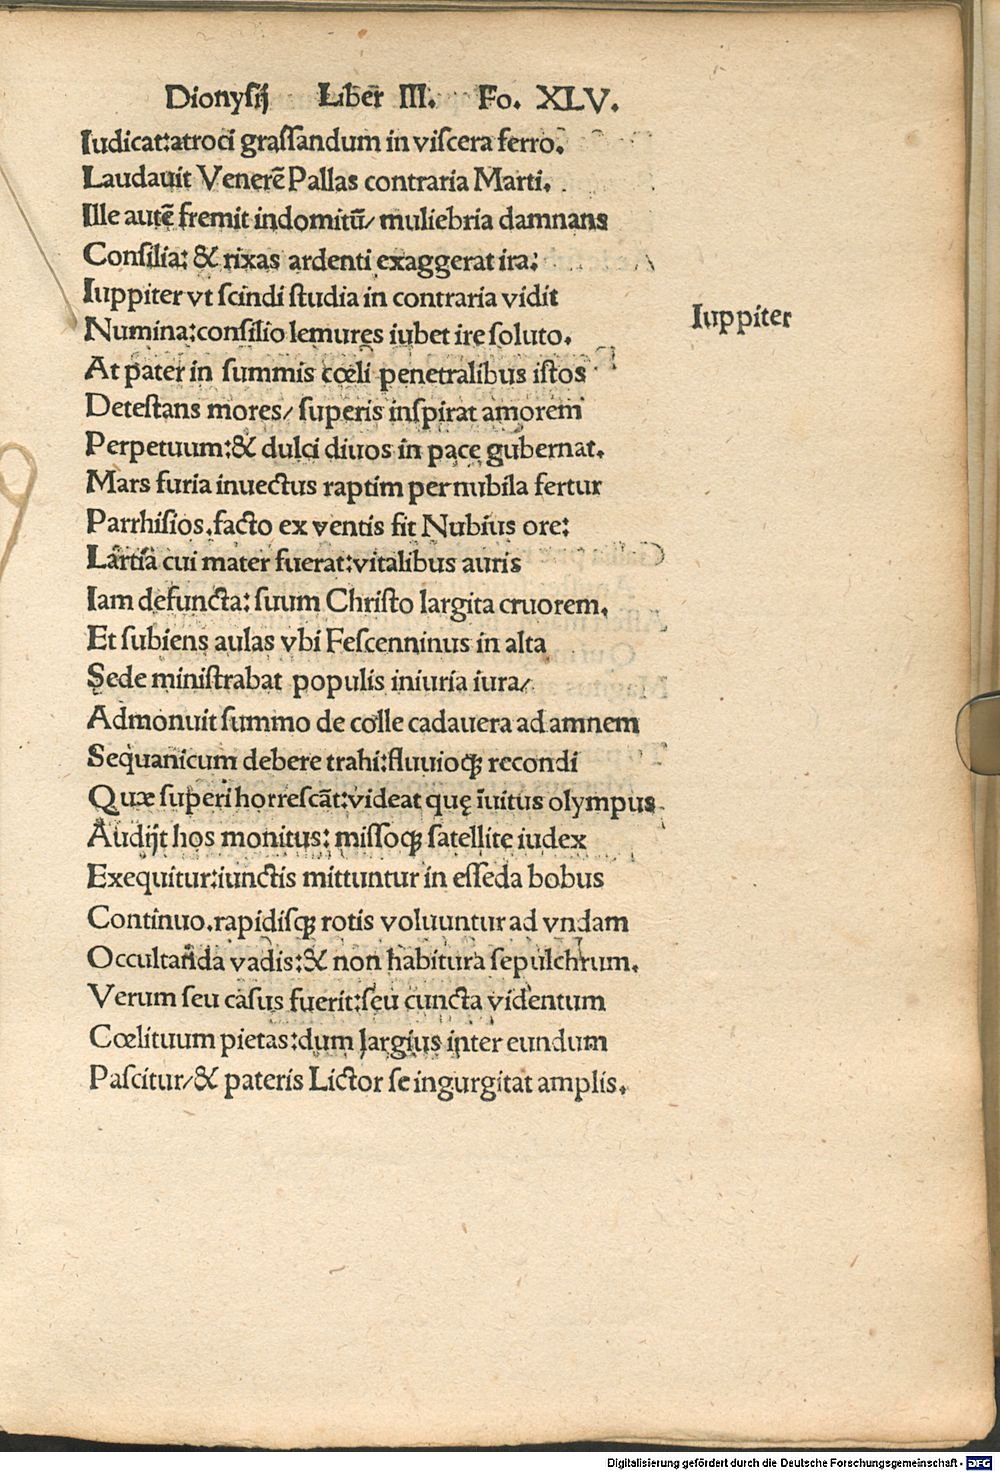 Dionyſij Liber III. Fo. XLV.
Iudicat:atroci graſſandum in viſcera ferro.
Laudauit Venerē Pallas contraria Marti.
Ille autē fremit indomitū/ muliebria damnans
Conſilia: & rixas ardenti exaggerat ira:
Iuppiter vt ſcindi ſtudia in contraria vidit
Iuppiter
Numina:conſilio lemures iubet ire ſoluto.
At pater in ſummis cœli penetralibus iſtos
Deteſtans mores/ ſuperis inſpirat amorem
Perpetuum:& dulci diuos in pace gubernat.
Mars furia inuectus raptim per nubila fertur
Parrhiſios.facto ex ventis fit Nubius ore:
Lartia cui mater fuerat:vitalibus auris
Iam defuncta: ſuum Chriſto largita cruorem.
Et ſubiens aulas vbi Feſcenninus in alta
Sede miniſtrabat populis iniuria iura/
Admonuit ſummo de colle cadauera ad amnem
Sequanicum debere trahi:fluuioqꝫ recondi
Quæ ſuperi horreſcāt:videat quę īuitus olympus
Audijt hos monitus: miſſoqꝫ ſatellite iudex
Exequitur:iunctis mittuntur in eſſeda bobus
Continuo.rapidiſqꝫ rotis voluuntur ad vndam
Occultanda vadis:& non habitura ſepulchrum.
Verum ſeu caſus fuerit:ſeu cuncta videntum
Cœlituum pietas:dum largius inter eundum
Paſcitur/& pateris Lictor ſe ingurgitat amplis.
Digitalisierung gefördert durch die Deutsche Forschungsgemeinschaft - DFG